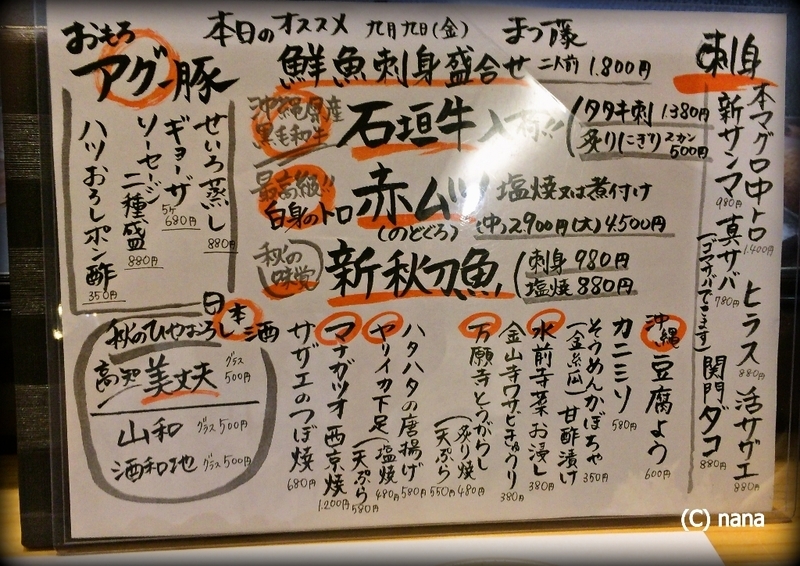 本日のオススメ 九月九日(金) まつ藤
おもろ
アグー豚
せいろ蒸し 880円
ギョーザ 5ヶ 680円
ソーセージ二種盛 880円
ハツおろしポン酢 350円
鮮魚刺身盛合せ 二人前 1.800円
沖縄県産
黒毛和牛
石垣牛入荷!!
タタキ刺 1.380円
炙りにぎり 2カン 500円
最高級!!
白身のトロ
赤ムツ
(のどぐろ)
塩焼又は煮付け
(中)2.900円(大)4.500円
秋の味覚
新秋刀魚
刺身 980円
塩焼 880円
刺身
本マグロ中トロ 1.400円
新サンマ 980円
真サバ 780円
(ゴマサバできます)
ヒラス 880円
活サザエ 880円
関門ダコ 880円
沖縄豆腐よう 600円
カニミソ 580円
そうめんかぼちゃ
(金糸瓜)甘酢漬け 350円
水前寺菜お浸し 380円
金山寺ワサビきゅうり 380円
万願寺とうがらし
(炙り焼 480円
(天ぷら 550円
ハタハタの唐揚げ 580円
ヤリイカ下足
(塩焼 480円
(天ぷら 580円
マナガツオ西京焼 1.200円
サザエのつぼ焼 680円
日本酒
秋のひやおろし
高知 美丈夫 グラス 500円
山和 グラス 500円
酒和地 グラス 500円
(C) nana